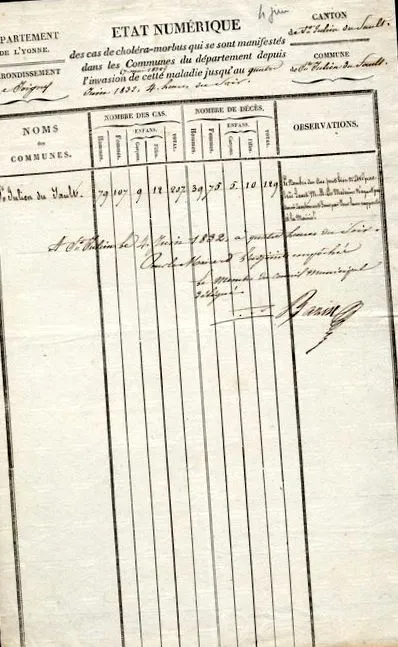 4 juin
DÉPARTEMENT
DE L'YONNE.
ARRONDISSEMENT
de Joigny
ETAT NUMÉRIQUE
des cas de choléra-morbus qui se sont manifestés
dans les Communes du département depuis
l'invasion de cette maladie jusqu'au quatre
Juin 1832. 4 heures du Soir.
CANTON
de St. Julien du Sault.
COMMUNE
de St. Julien du Sault.
NOMS
des
COMMUNES.
NOMBRE DES CAS.
Hommes.
Femmes.
ENFANS.
Garçons.
Filles.
TOTAL.
NOMBRE DE DÉCÈS.
Hommes.
Femmes.
ENFANS.
Garçons.
Filles.
TOTAL.
OBSERVATIONS.
St. Julien du Sault. 79 107 9 12 207 39 75 5 10 129
Le Nombre des Cas
à la Mairie.
A St. Julien le 4 Juin 1832, a quatre heures du Soir.
Pour le Maire et l'adjoint empêchés
Le Membre du Conseil Municipal
Délégué
Bazin